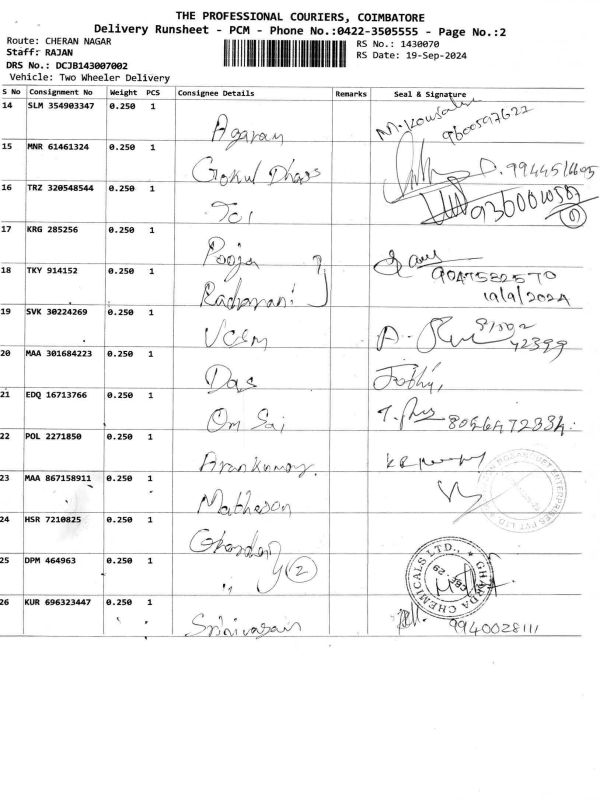 THE PROFESSIONAL COURIERS, COIMBATORE
Delivery Runsheet - PCM - Phone No.:0422-3505555 - Page No.:2
Route: CHERAN NAGAR
RS No.: 1430070
Staff: RAJAN
RS Date: 19-Sep-2024
DRS No.: DCJB143007002
Vehicle: Two Wheeler Delivery
S No Consignment No Weight PCS Consignee Details Remarks Seal & Signature
14 SLM 354903347 0.250 1 Agaram M. Kousalya 9600597622
15 MNR 61461324 0.250 1 Gokul Dhars
16 TRZ 320548544 0.250 1 Tci
17 KRG 285256 0.250 1 Pooja
18 TKY 914152 0.250 1 Radharani 9047582570
19/9/2024
19 SVK 30224269 0.250 1 VCSM 42399
20 MAA 301684223 0.250 1 Das Jothi,
21 EDQ 16713766 0.250 1 Om Sai
22 POL 2271850 0.250 1 Arunkumar
23 MAA 867158911 0.250 1 Matheson
24 HSR 7210825 0.250 1
25 DPM 464963 0.250 1 ,, 2
GHARDA CHEMICALS LTD.,
26 KUR 696323447 0.250 1 Srinivasan 9940028111